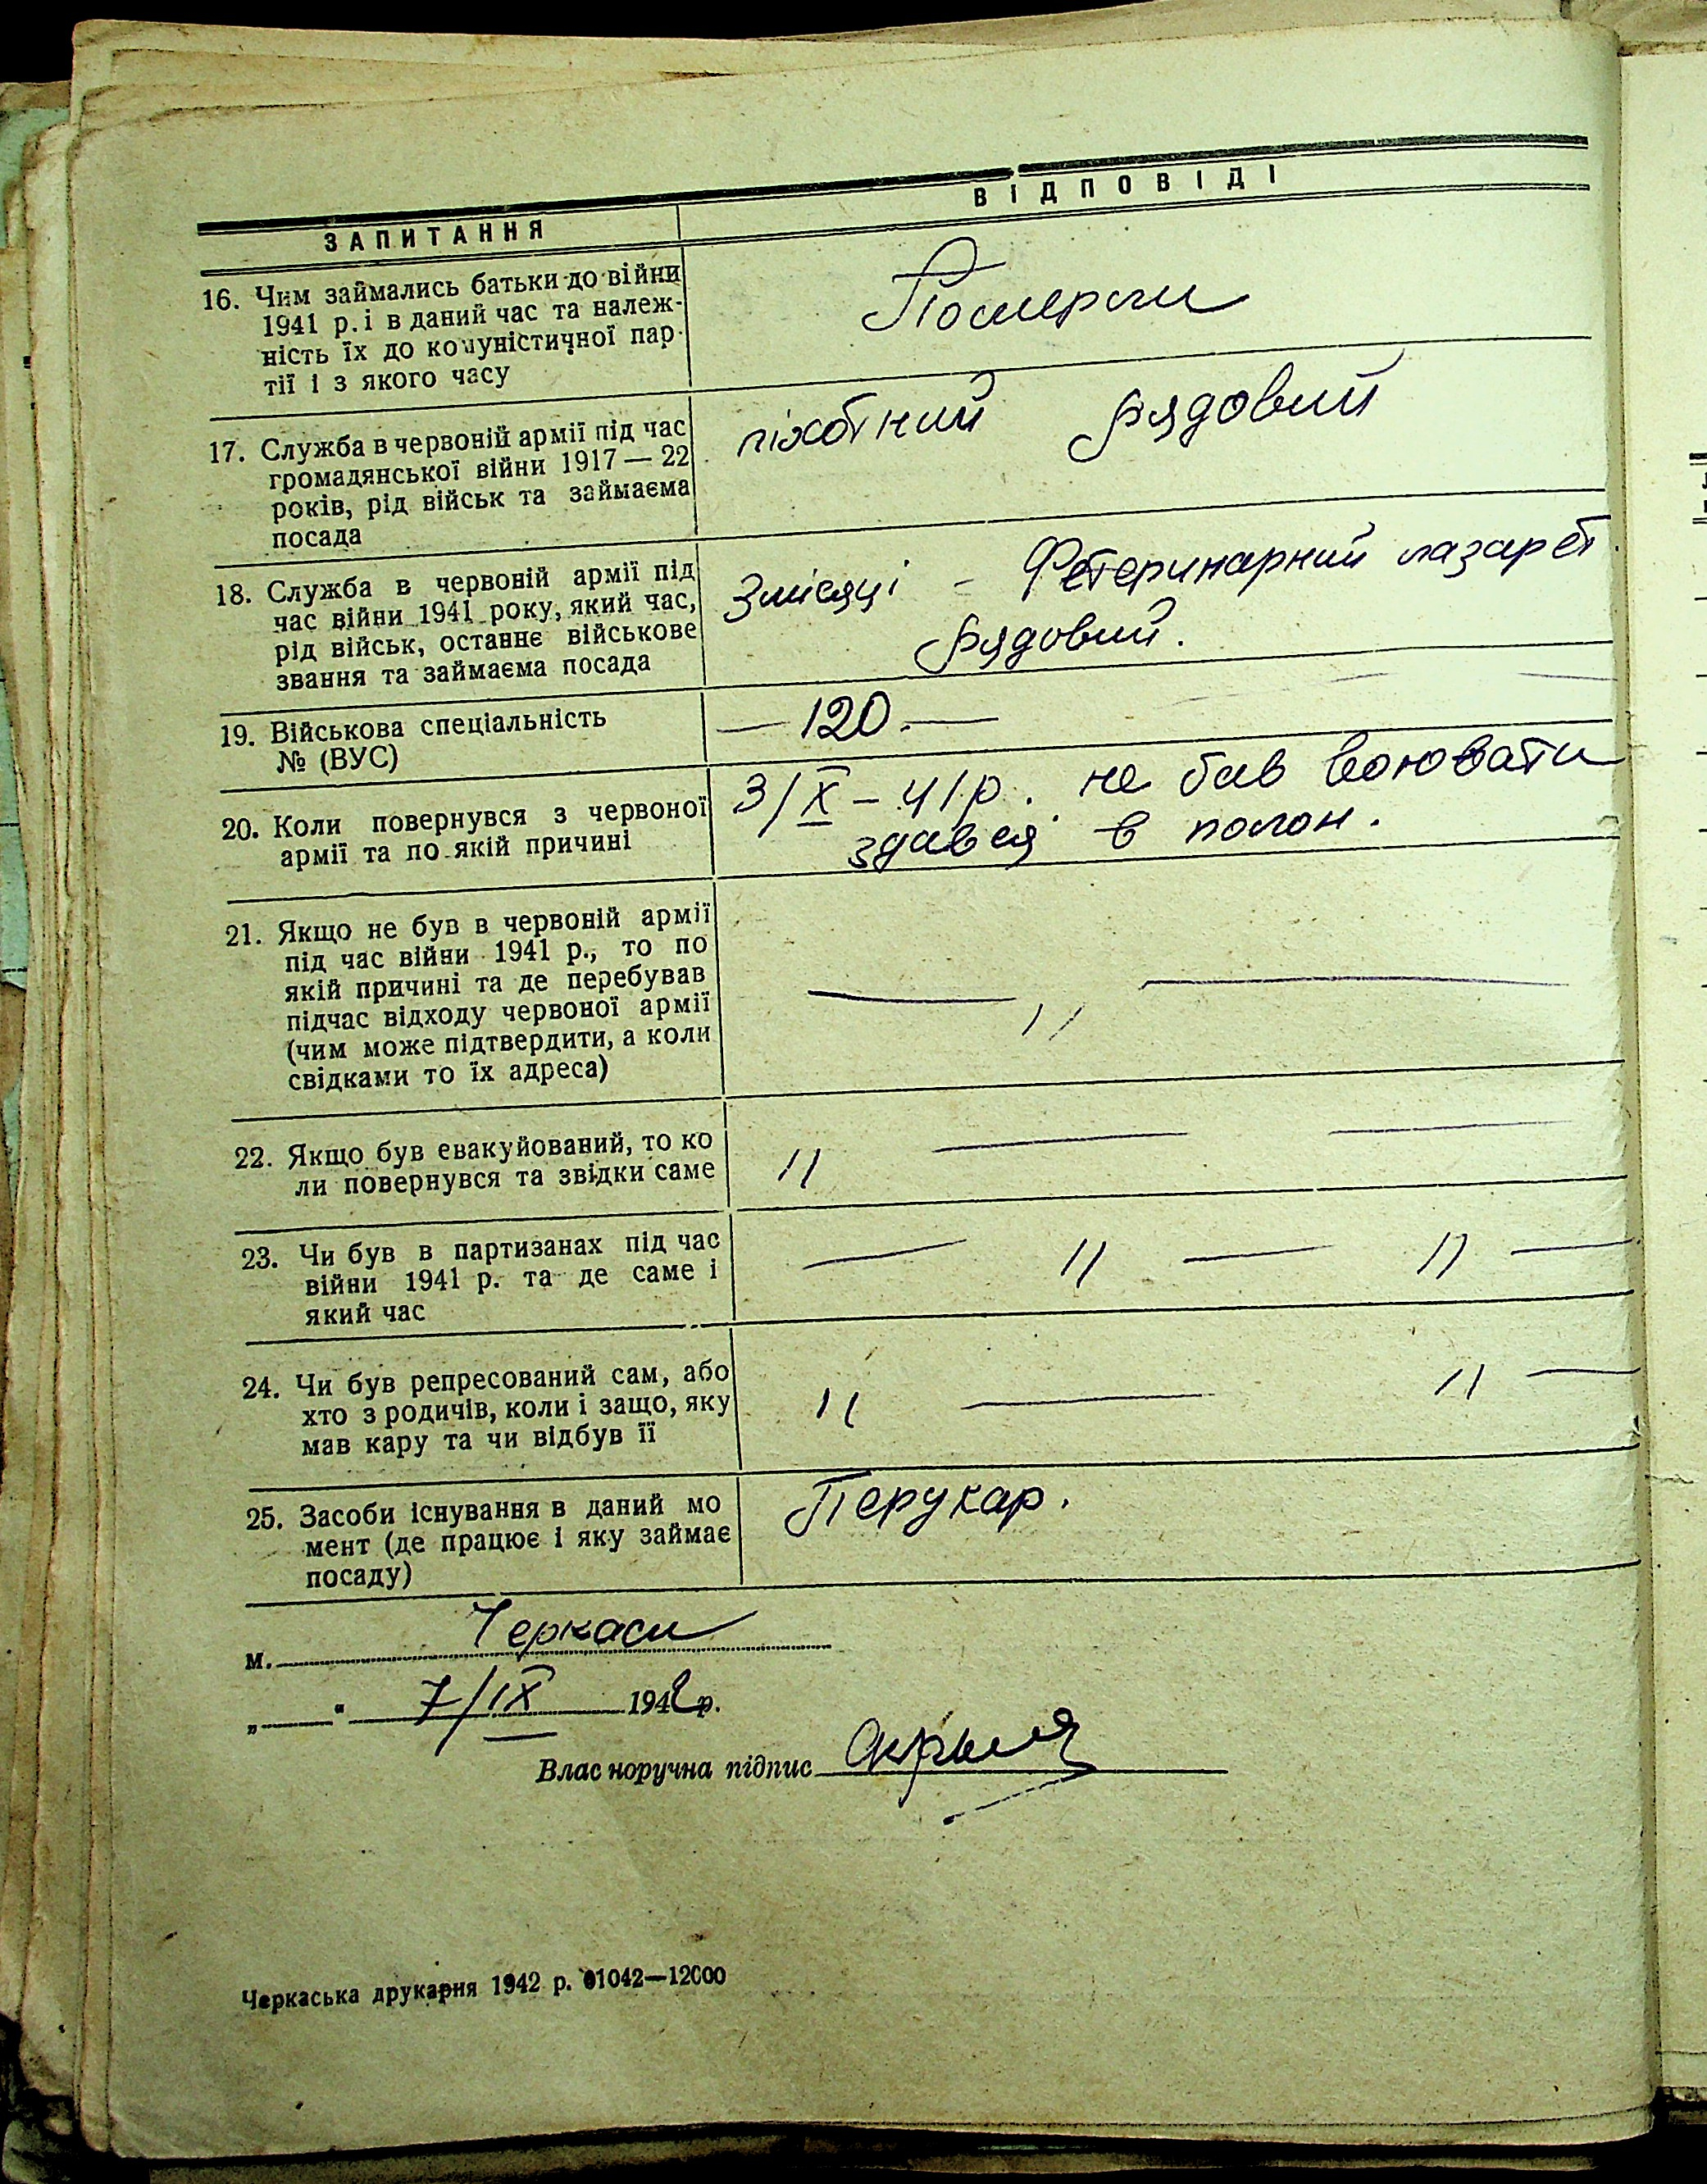 ЗАПИТАННЯ
ВІДПОВІДІ
16. Чим займались батьки до війни
1941 р. і в даний час та належ-
ність їх до комуністичної пар-
тії і з якого часу
Померли
17. Служба в червоній армії під час
громадянської війни 1917 — 22
років, рід військ та займаєма
посада
піхотний рядовий
18. Служба в червоній армії під
час війни 1941 року, який час,
рід військ, останнє військове
звання та займаєма посада
3 місяці – Фетеринарний лазарет
рядовий.
19. Військова спеціальність
№ (ВУС)
— 120. —
20. Коли повернувся з червоної
армії та по якій причині
3/X – 41 р. не бив воювати
здався в полон.
21. Якщо не був в червоній армії
під час війни 1941 р., то по
якій причині та де перебував
підчас відходу червоної армії
(чим може підтвердити, а коли
свідками то їх адреса)
— // —
22. Якщо був евакуйований, то ко
ли повернувся та звідки саме
// — —
23. Чи був в партизанах під час
війни 1941 р. та де саме і
який час
— // — // —
24. Чи був репресований сам, або
хто з родичів, коли і защо, яку
мав кару та чи відбув її
// — // —
25. Засоби існування в даний мо
мент (де працює і яку займає
посаду)
Перукар.
м. Черкаси
„ “ 7/IX 1942 р.
Власноручна підпис
Черкаська друкарня 1942 р. 01042—12000